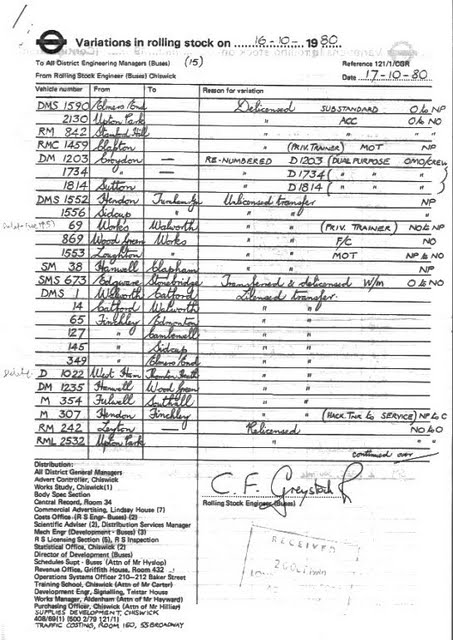 Variations in rolling stock on 16-10-1980
To All District Engineering Managers (Buses) (15) Reference 121/1/CGR
From Rolling Stock Engineer (Buses) Chiswick Date 17-10-80
Vehicle number From To Reason for variation
DMS 1590 Elmers End Delicensed SUBSTANDARD O to NP
2130 Upton Park " ACC O to NO
RM 842 Stamford Hill " " "
RMC 1459 Clapton " (PRIV. TRAINER) MOT NP
DM 1203 Croydon — RE-NUMBERED D1203 (DUAL PURPOSE OMO/CREW)
1734 " — " D1734 ( " " )
1814 Sutton " D1814 ( " " )
DMS 1552 Hendon Turnham Gn Unlicensed transfer NP
1556 Sidcup " " " "
69 Works Walworth " " (PRIV. TRAINER) NO to NP
869 Wood Green Works " " F/C NO
1553 Loughton " " " MOT NP to NO
SM 38 Hanwell Clapham " " NP
SMS 673 Edgware Stonebridge Transferred & delicensed W/m O to NO
DMS 1 Walworth Catford Licensed transfer
14 Catford Walworth " "
65 Finchley Edmonton " "
127 " Camberwell " "
145 " Sidcup " "
349 " Elmers End " "
D 1022 West Ham Thornton Heath " "
DM 1235 Hanwell Wood Green " "
M 354 Fulwell Southall " "
M 307 Hendon Finchley " " (HACK. TNR to SERVICE) NP to O
RM 242 Leyton — Relicensed NO to O
RML 2532 Upton Park " "
continued over
Distribution:
All District General Managers
Advert Controller, Chiswick
Works Study, Chiswick(1)
Body Spec Section
Central Record, Room 34
Commercial Advertising, Lindsay House (7)
Costs Office (R S Engr- Buses) (2)
Scientific Adviser (2), Distribution Services Manager
Mech Engr (Development - Buses) (3)
R S Licensing Section (5), R S Inspection
Statistical Office, Chiswick (2)
Director of Development (Buses)
Schedules Supt - Buses (Attn of Mr Hyslop)
Revenue Office, Griffith House, Room 432
Operations Systems Officer 210-212 Baker Street
Training School, Chiswick (Attn of Mr Carter)
Development Engr, Signalling, Telstar House
Works Manager, Aldenham (Attn of Mr Hayward)
Purchasing Officer, Chiswick (Attn of Mr Hillier)
SUPPLIES DEVELOPMENT, CHISWICK
408/69(1) (600 2/79 121/1)
TRAFFIC COSTING, ROOM 150, 55 BROADWAY
C. F. Greystock
Rolling Stock Engineer (Buses)
RECEIVED